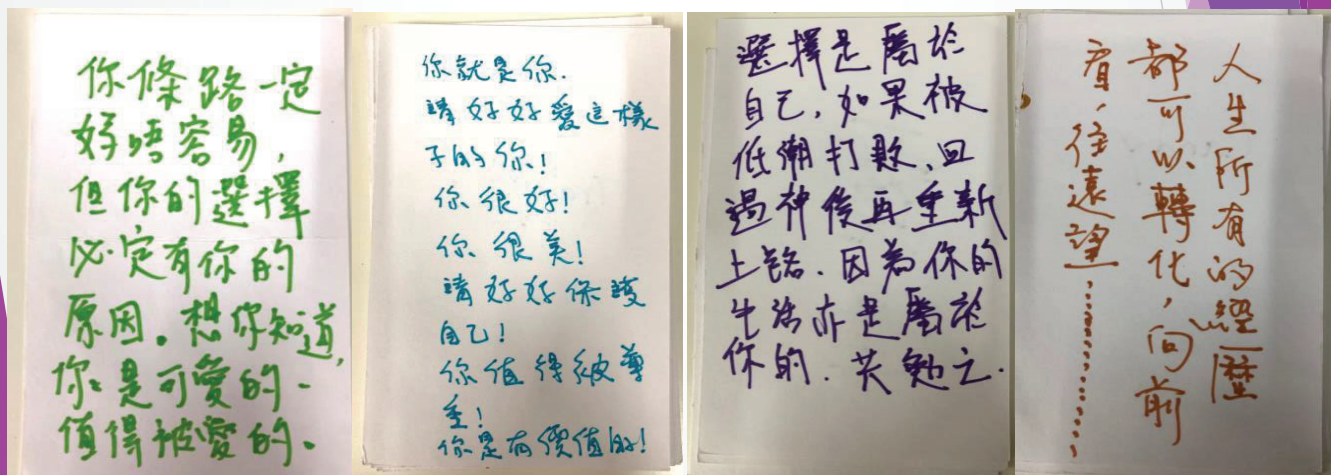 你條路一定
好唔容易,
但你的選擇
必定有你的
原因。想你知道,
你是可愛的、
值得被愛的。
你就是你.
請好好愛這樣
子的你!
你很好!
你很美!
請好好保護
自己!
你值得被尊
重!
你是有價值的!
選擇是屬於
自己,如果被
低潮打敗,回
過神後再重新
上路.因為你的
生活亦是屬於
你的.共勉之.
人生所有的經歷
都可以轉化,向前
看,往遠望,............